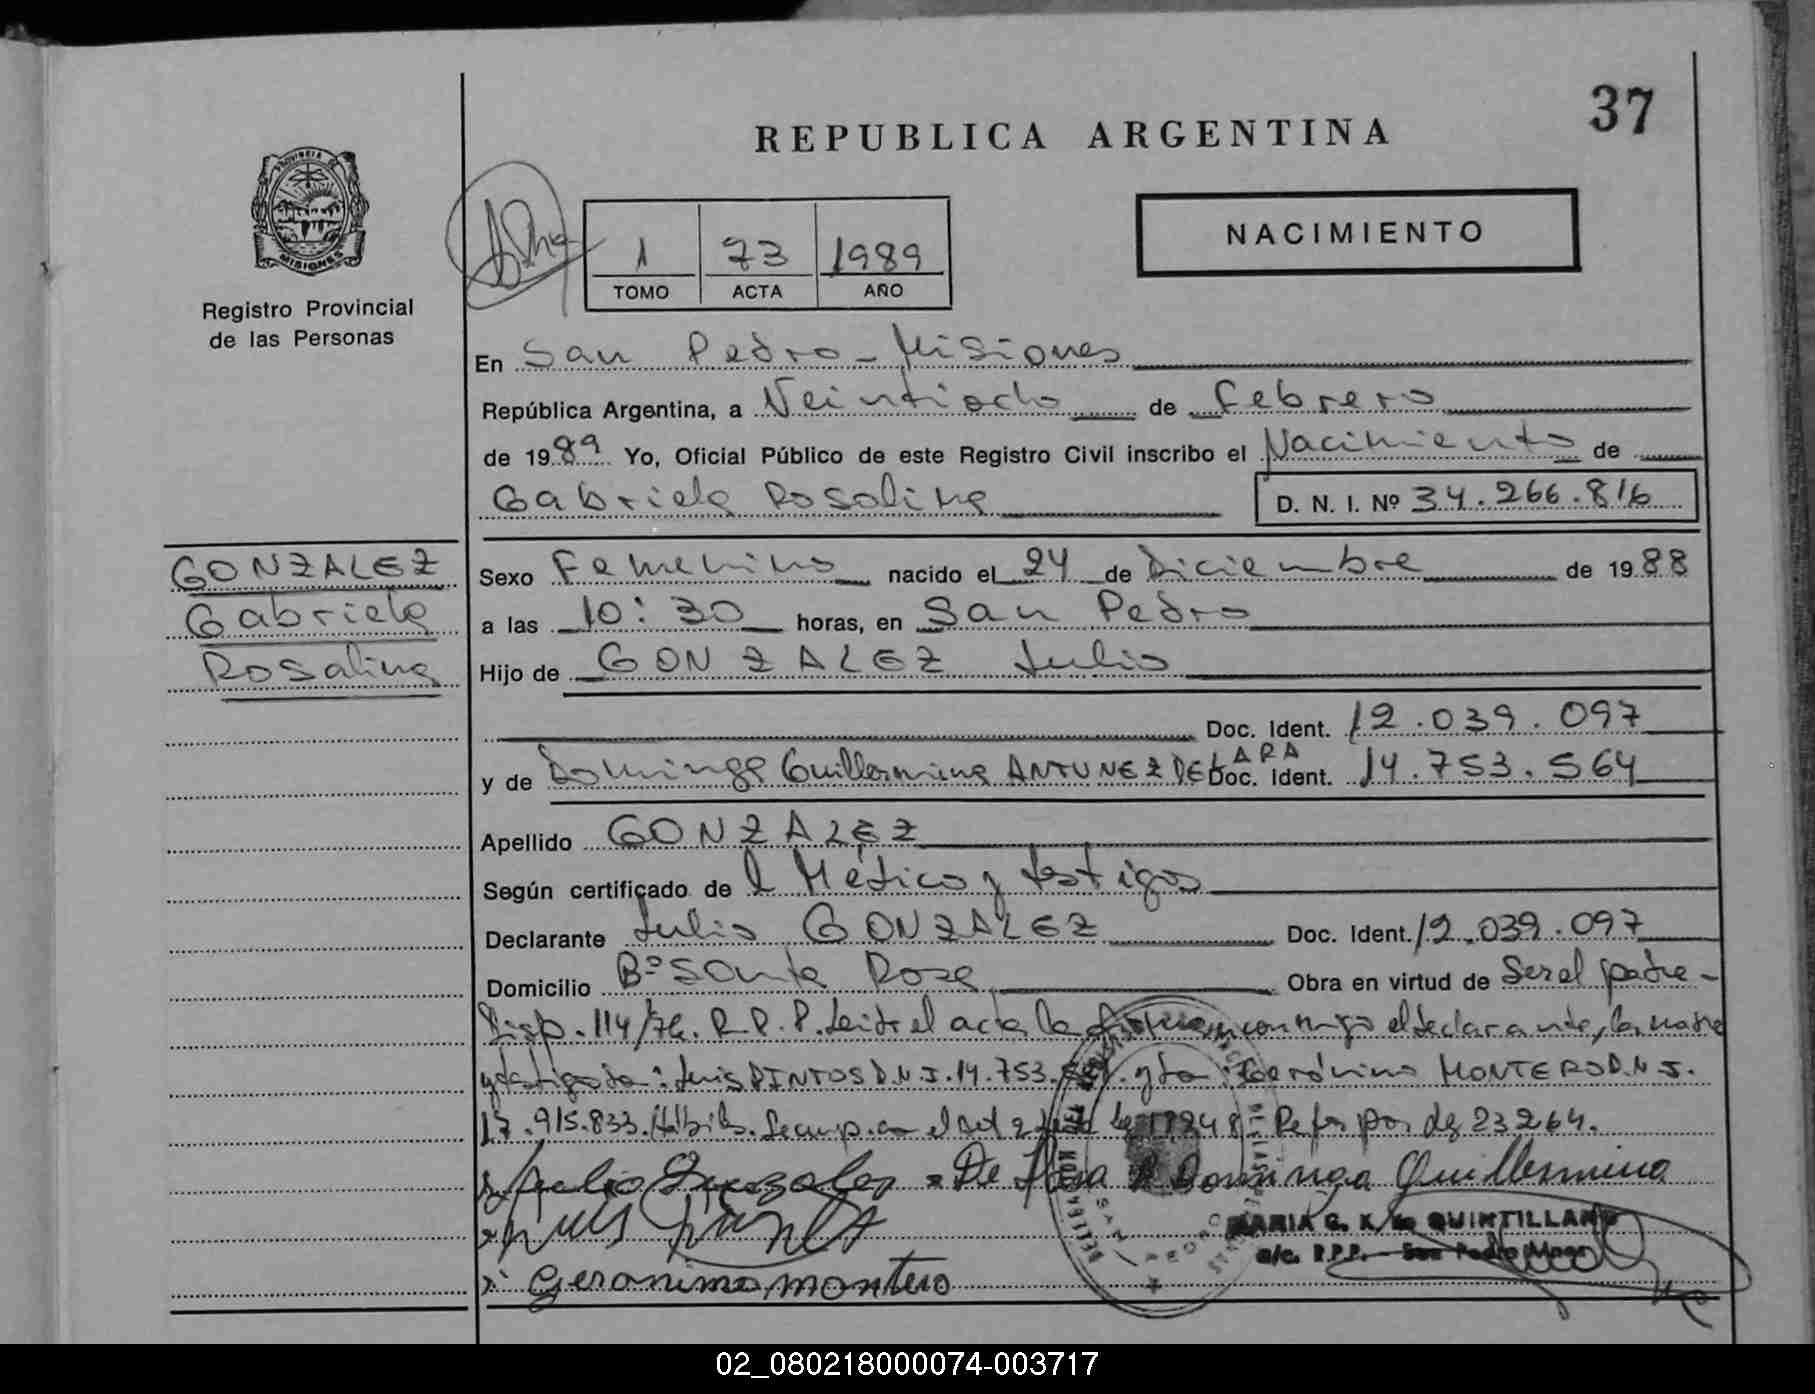 37
REPUBLICA ARGENTINA
PROVINCIA DE
MISIONES
Registro Provincial
de las Personas
NACIMIENTO
1 73 1989
TOMO ACTA AÑO
En San Pedro - Misiones
República Argentina, a Veintiocho de Febrero
de 1989 Yo, Oficial Público de este Registro Civil inscribo el Nacimiento de
Gabriela Rosalina D. N. I. Nº 34.266.816
GONZALEZ
Gabriela
Rosalina
Sexo Femenino nacido el 24 de Diciembre de 1988
a las 10:30 horas, en San Pedro
Hijo de GONZALEZ Julio
Doc. Ident. 12.039.097
y de Dominga Guillermina ANTUNEZ DE LARA Doc. Ident. 14.753.564
Apellido GONZALEZ
Según certificado de l Médico y testigos
Declarante Julio GONZALEZ Doc. Ident. 12.039.097
Domicilio Bº Santa Rosa Obra en virtud de Ser el padre -
Disp. 114/76. R.P.P. Leida el acta la firman conmigo el declarante, la madre
y testigos : Luis PINTOS D.N.I. 14.753. y Gerónimo MONTERO D.N.I.
17.915.833. Hábiles. 17248 - 23264.
Julio Gonzalez De Lara Dominga Guillermina
Luis Pintos
MARIA G. K. de QUINTILLAN
a/c. R.P.P. - San Pedro Mnes
Geronimo montero
02_080218000074-003717